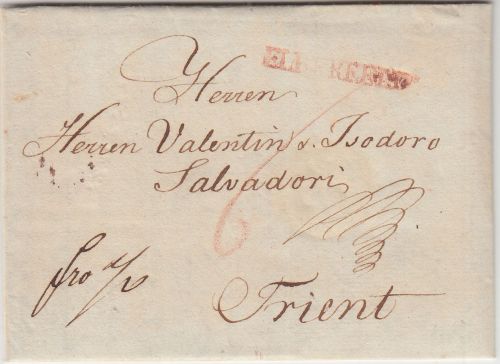 Herren
Herren Valentin v. Isodoro
Salvadori
6
fro
Trient